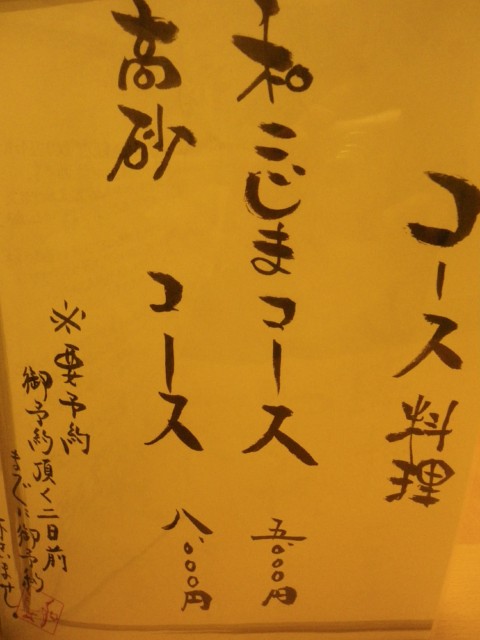 コース料理
和こじまコース 五、〇〇〇円
高砂コース 八、〇〇〇円
※要予約
御予約頂く二日前
までに御予約
ませ。